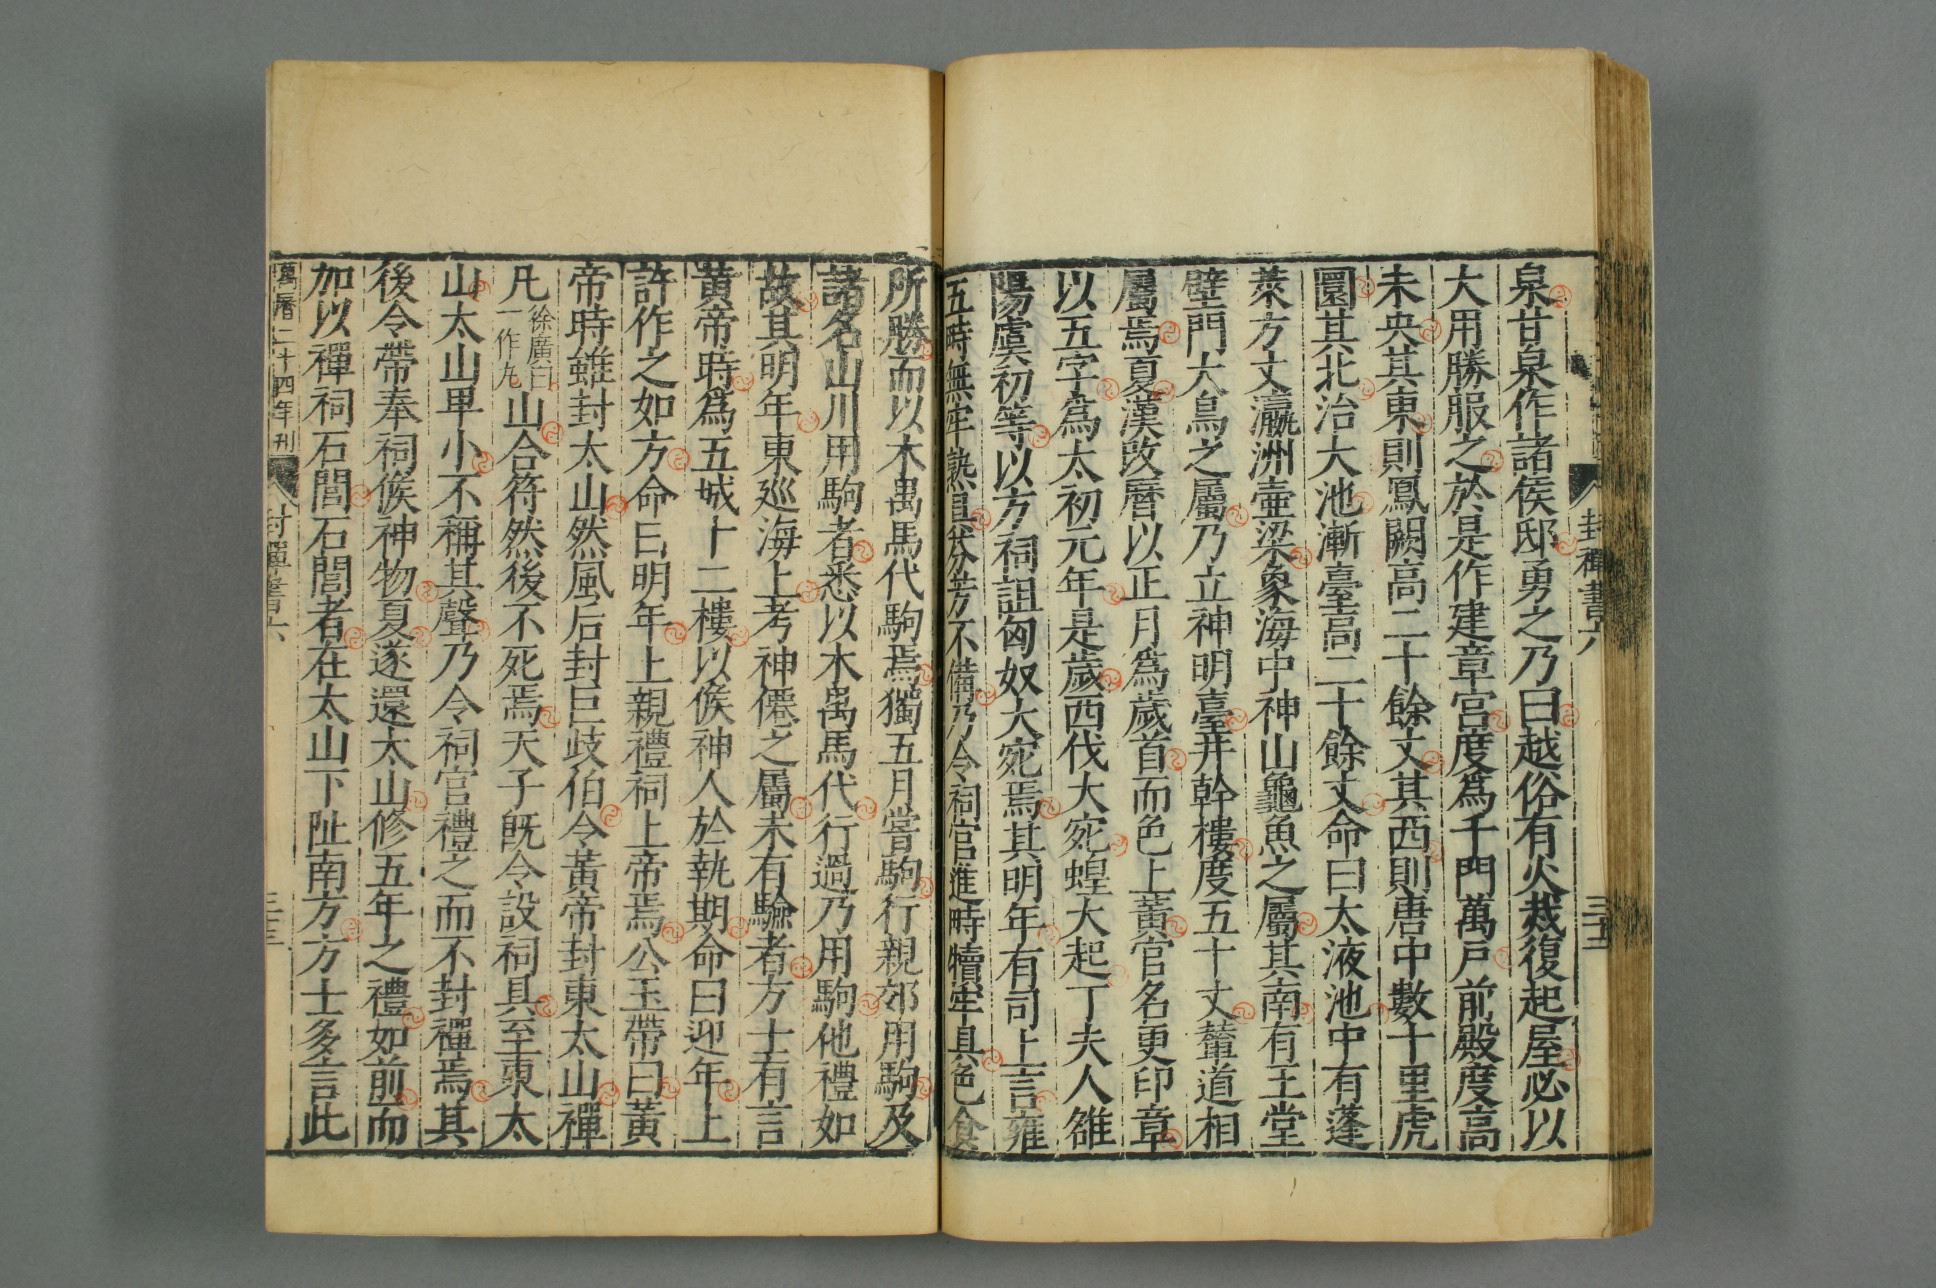 泉甘泉作諸侯邸勇之乃曰越俗有火烖復起屋必以
大用勝服之於是作建章宮度爲千門萬戶前殿度高
未央其東則鳳闕高二十餘丈其西則唐中數十里虎
圈其北治大池漸臺高二十餘丈命曰太液池中有蓬
萊方丈瀛洲壺梁象海中神山龜魚之屬其南有玉堂
壁門大鳥之屬乃立神明臺井幹樓度五十丈輦道相
屬焉夏漢改曆以正月爲歲首而色上黃官名更印章
以五字爲太初元年是歲西伐大宛蝗大起丁夫人雒
陽虞初等以方祠詛匈奴大宛焉其明年有司上言雍
五畤無牢熟具芬芳不備乃令祠官進畤犢牢具色食
封禪書六
所勝而以木禺馬代駒焉獨五月嘗駒行親郊用駒及
諸名山川用駒者悉以木禺馬代行過乃用駒他禮如
故其明年東巡海上考神僊之屬未有驗者方士有言
黃帝時爲五城十二樓以候神人於執期命曰迎年上
許作之如方命曰明年上親禮祠上帝焉公玉帶曰黃
帝時雖封太山然風后封巨歧伯令黃帝封東太山禪
凡徐廣曰一作丸山合符然後不死焉天子既令設祠具至東太
山太山卑小不稱其聲乃令祠官禮之而不封禪焉其
後令帶奉祠候神物夏遂還太山修五年之禮如前而
加以禪祠石閭石閭者在太山下阯南方方士多言此
萬曆二十四年刊
封禪書六